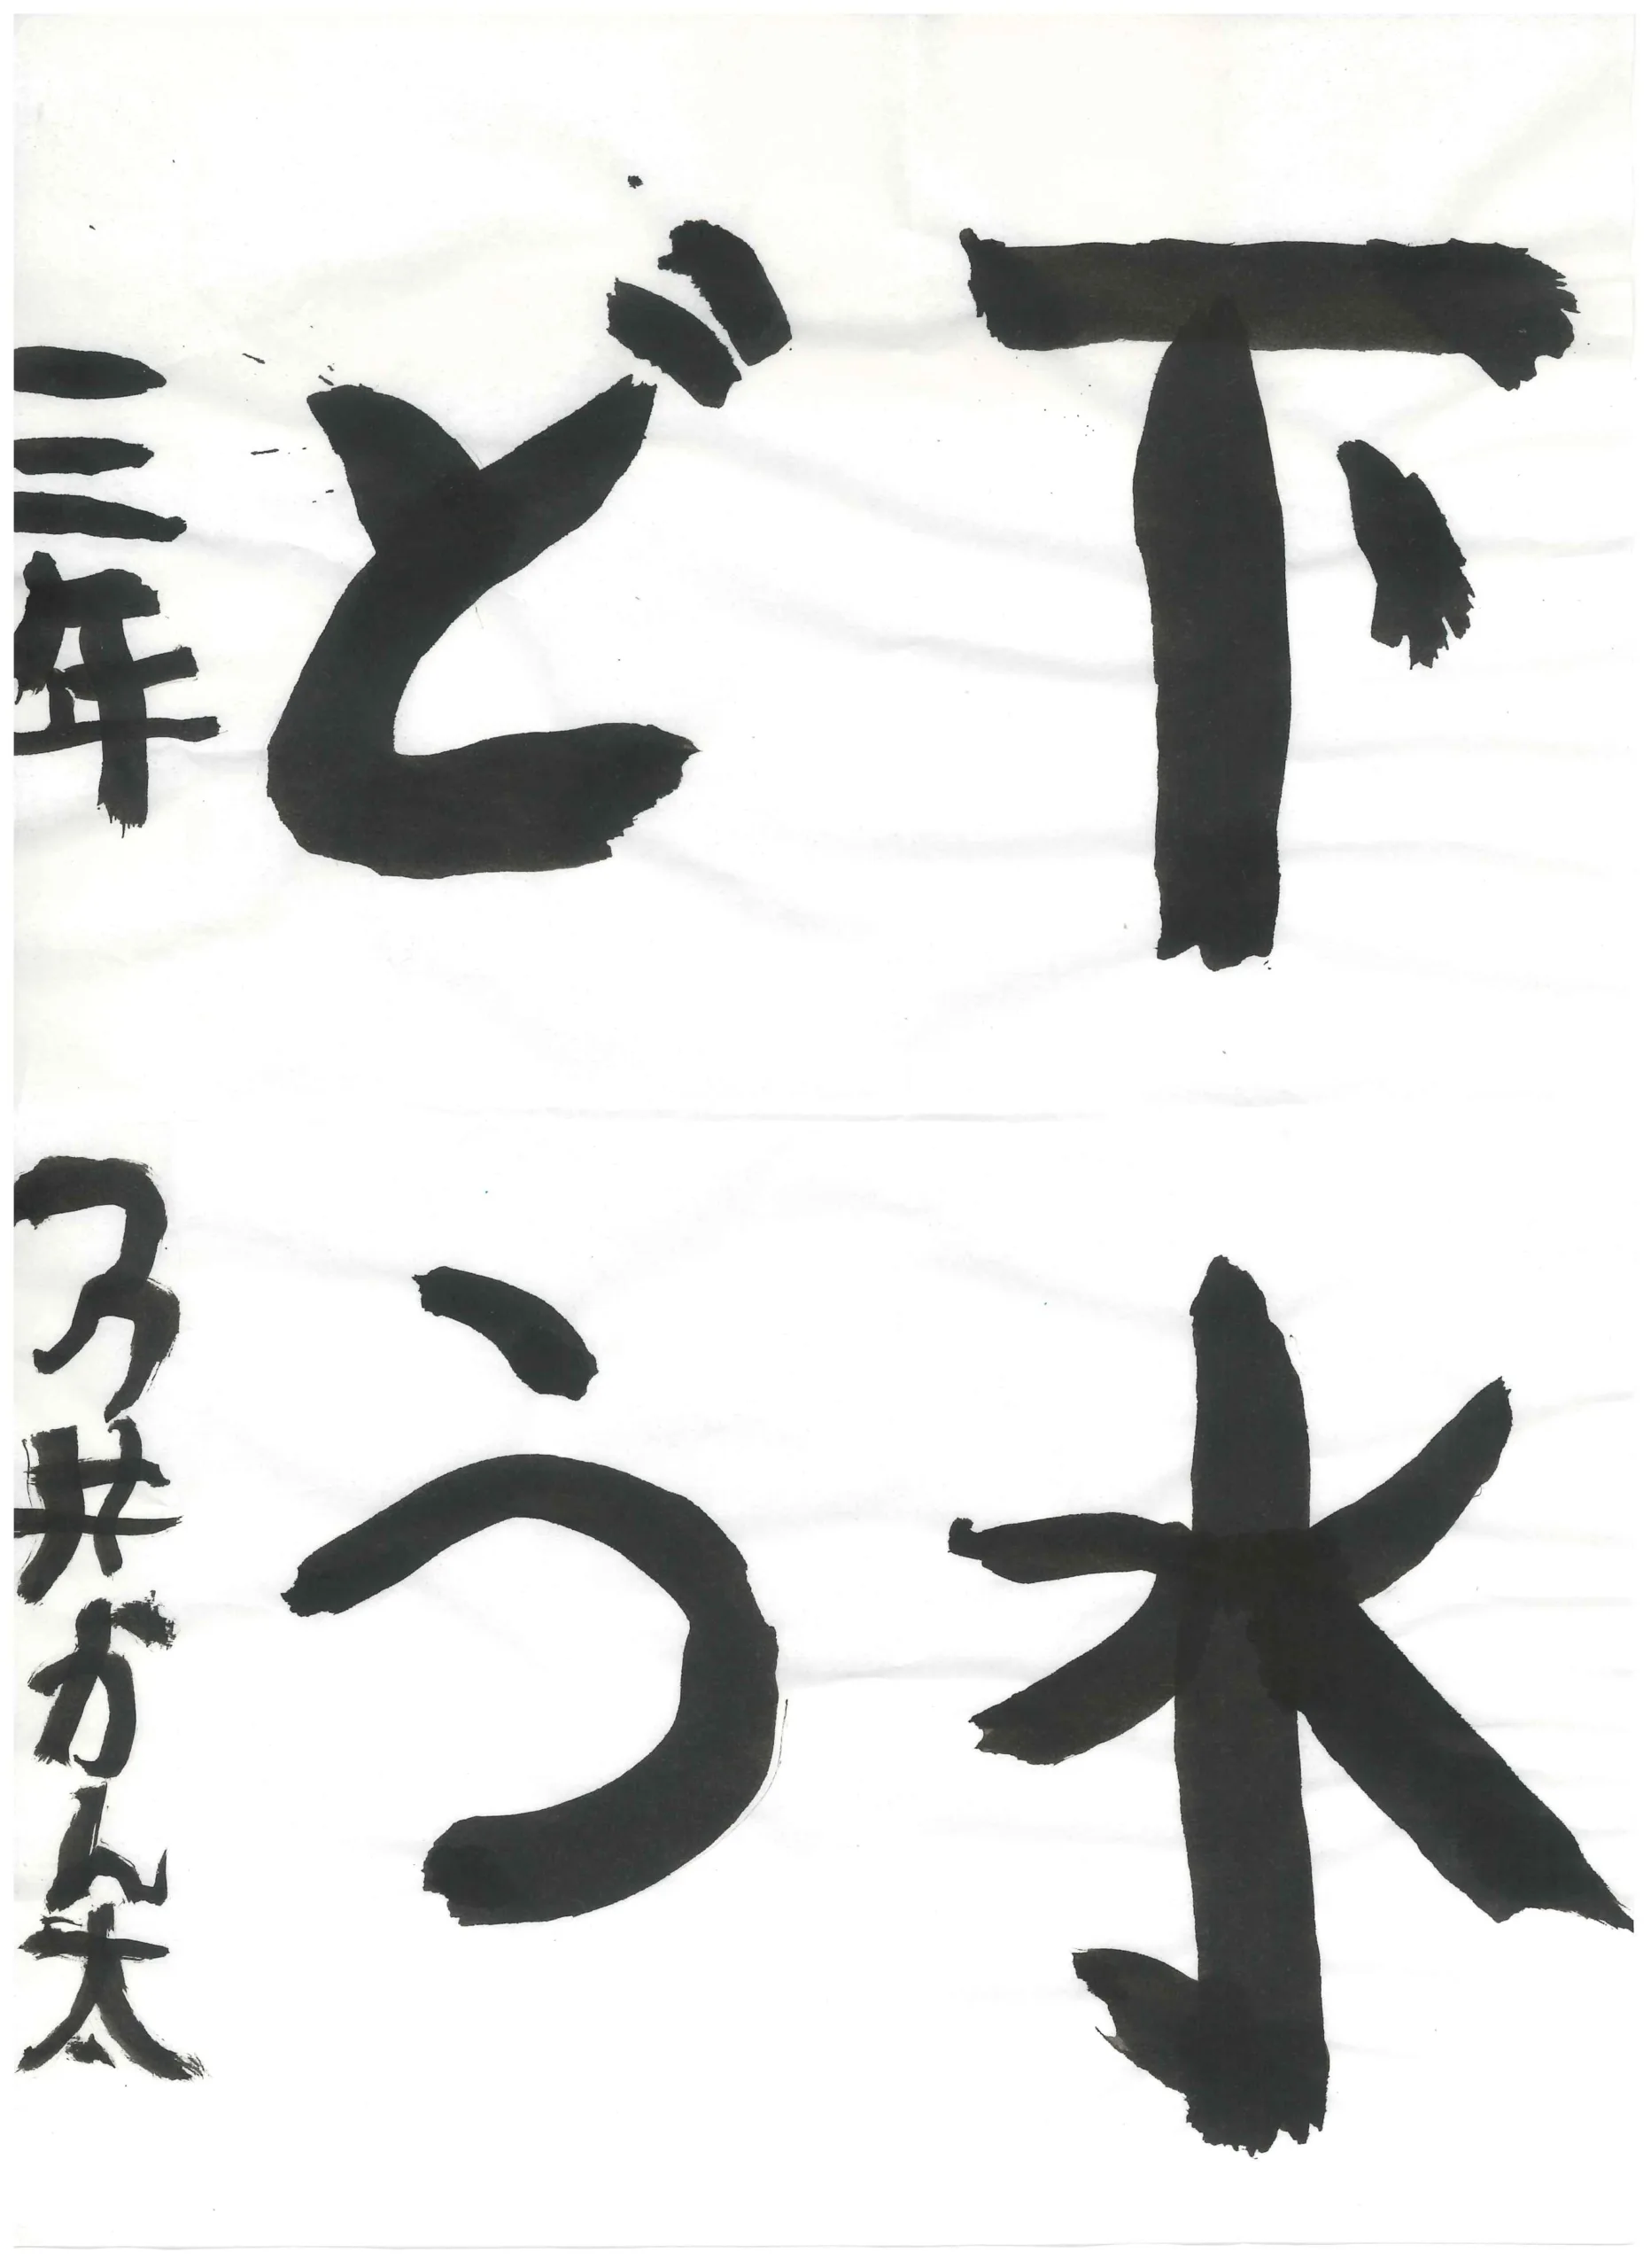 下水
どう
三年 井かん太